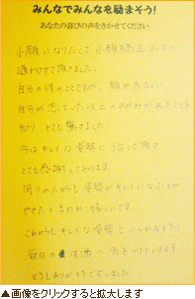 みんなでみんなを励まそう！
あなたの喜びの声をきかせてください
小顔になりたくて 小顔矯正コースに
通わせて頂きました。
自分の体のことですが、顔や表情など
自分が思っていた以上のゆがみがあったことを
知り とても驚きました。
今はキレイな姿勢になって頂いて
とても感謝しております。
周りの人からも姿勢がキレイになったとか
やせたと言われ 嬉しいです。
これからもキレイな姿勢でいられるように
毎日の生活に気をつけていきます。
どうもありがとうございました。
▲画像をクリックすると拡大します